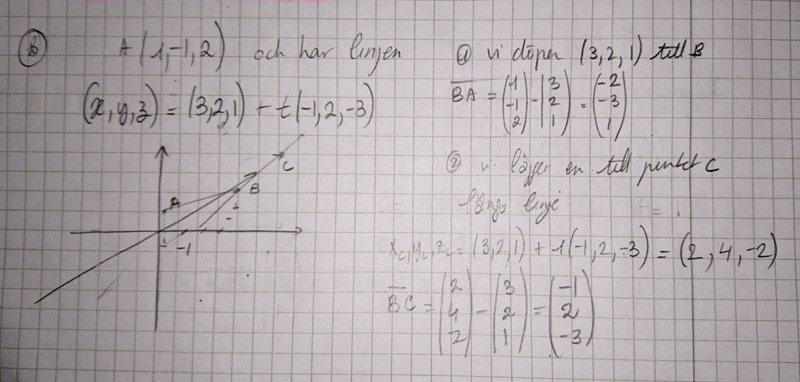 (b) A(1,-1,2) och har linjen
(x,y,z) = (3,2,1) + t(-1,2,-3)
A
B
C
-1
① vi döper (3,2,1) till B
BA = (1 -1 2) - (3 2 1) = (-2 -3 1)
② vi lägger en till punkt C
längs linje
xc,yc,zc = (3,2,1) + 1(-1,2,-3) = (2,4,-2)
BC = (2 4 2) - (3 2 1) = (-1 2 -3)